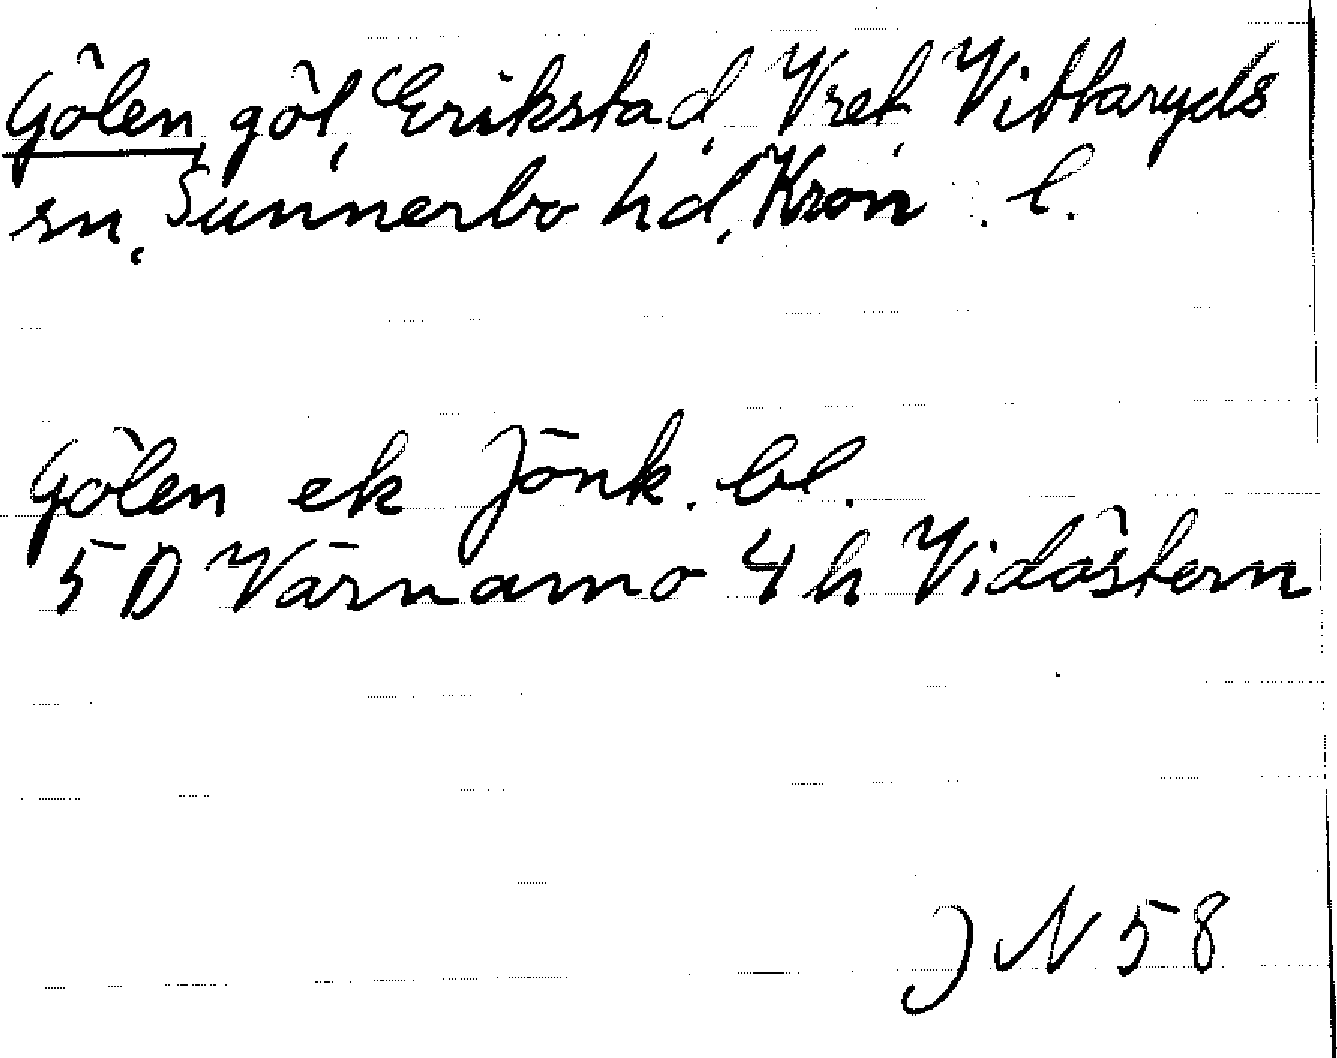 Gölen, göl, Erikstad, Vret, Vittaryds
sn, Sunnerbo hd, Kron. l.
Gölen ek Jönk. bl.
5D Värnamo 4h Vidöstern
JN 58